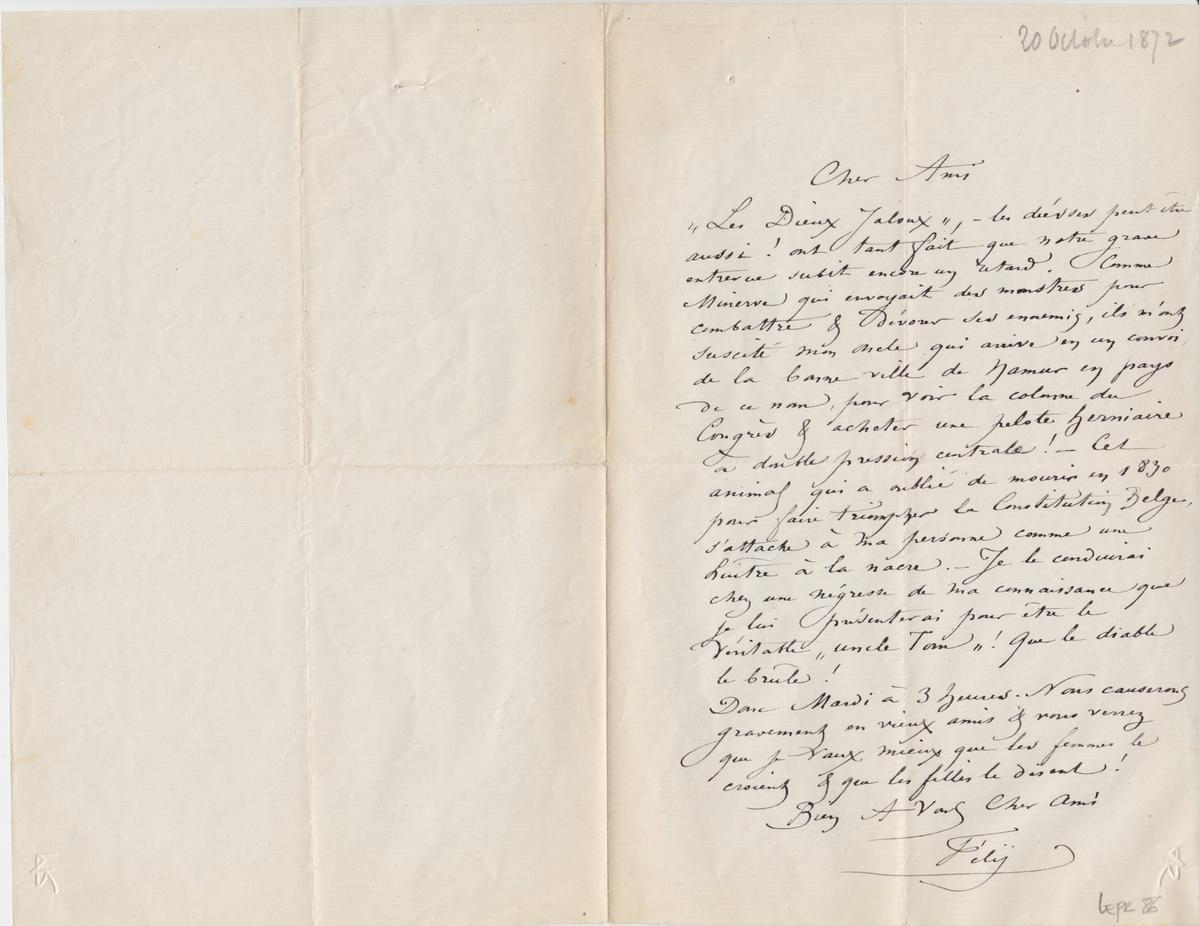 20 Octobre 1872
Cher Ami
„ Les Dieux Jaloux „, – les déesses peut être
aussi ! ont tant fait que notre grave
entrevue subit encore un retard. Comme
Minerve qui envoyait des monstres pour
combattre & dévorer ses ennemis, ils m'ont
suscité mon oncle qui arrive en un convoi,
de la bonne ville de Namur en pays
de ce nom, pour voir la colonne du
Congrès & acheter une pelote herniaire
à double pression centrale ! – Cet
animal qui a oublié de mourir en 1830
pour faire triompher la Constitution Belge,
s'attache à ma personne comme une
huître à la nacre. – Je le conduirai
chez une négresse de ma connaissance que
je lui présenterai pour être le
véritable „ uncle Tom „ ! Que le diable
le brûle !
Donc Mardi à 3 heures. Nous causerons
gravement en vieux amis & vous verrez
que je vaux mieux que les femmes le
croient & que les filles le disent !
Bien A Vous Cher Ami
Fély
LEpr 86